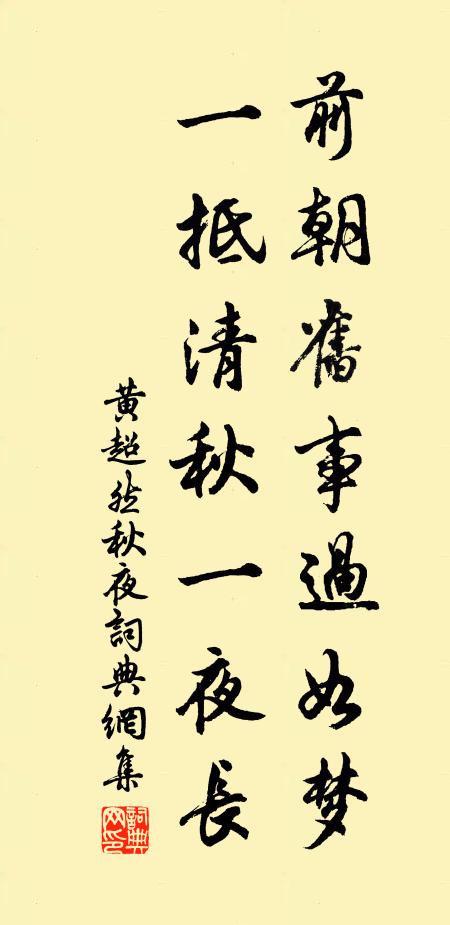 前朝舊事過如梦
一抵清秋一夜長
黄超然秋夜詞典網集
詞典網印